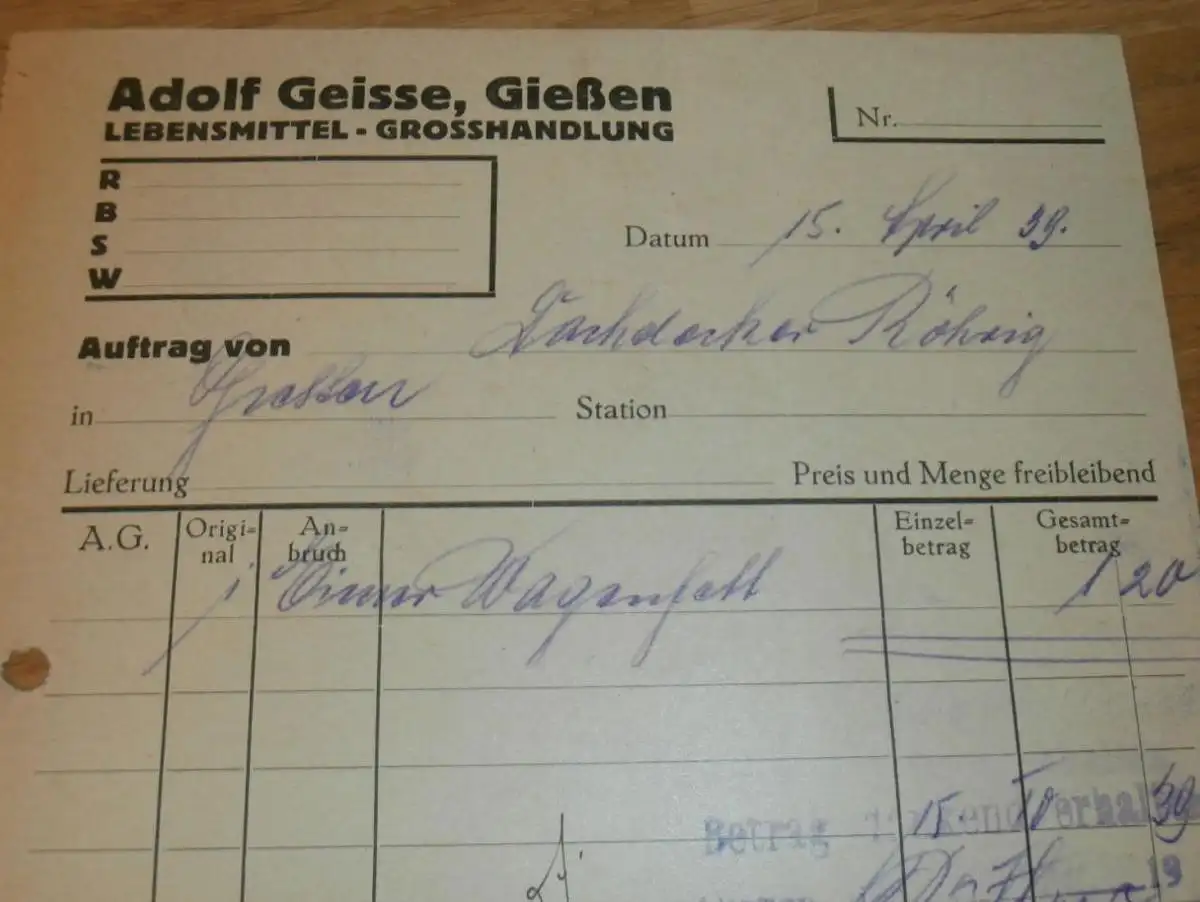 Adolf Geisse, Gießen
LEBENSMITTEL - GROSSHANDLUNG
Nr.
R
B
S
W
Datum 15. April 39.
Auftrag von Dachdecker Röhrig
in
Station
Lieferung
Preis und Menge freibleibend
A.G. Origi= nal An= bruch Einzel= betrag Gesamt= betrag
1 Eimer Wagenfett 1 20
Betrag
15. 39
19